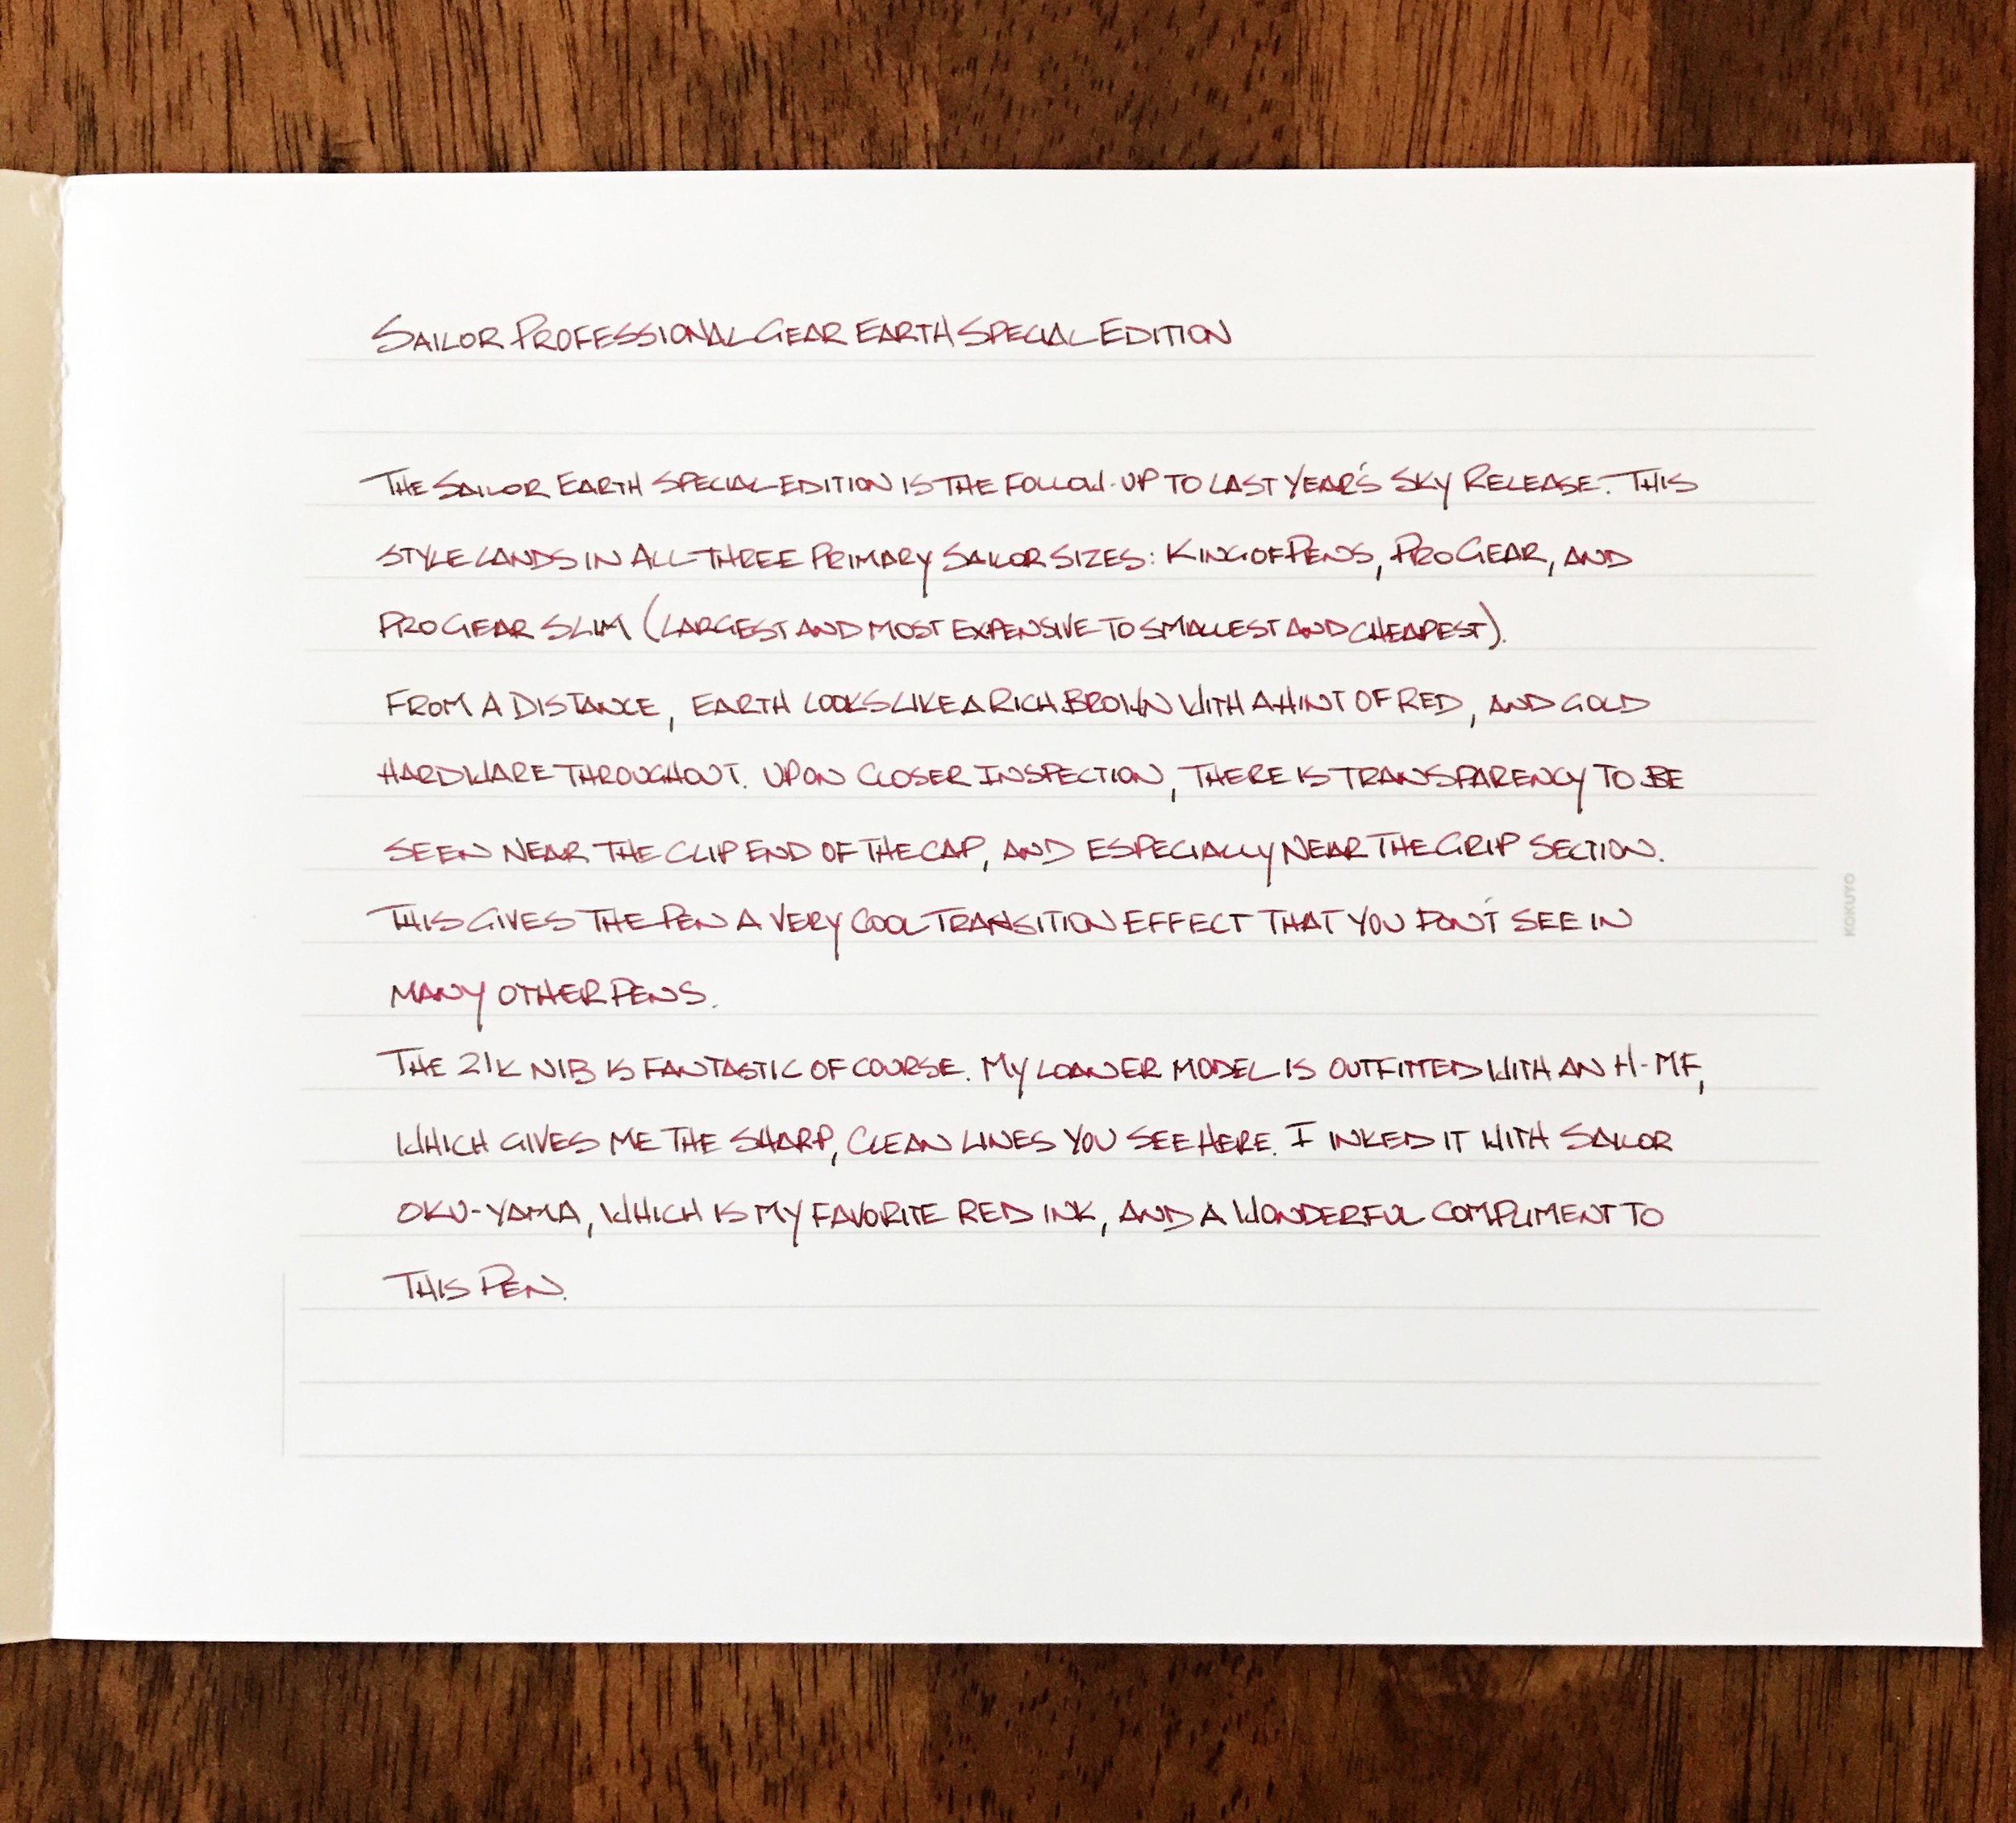 SAILOR PROFESSIONAL GEAR EARTH SPECIAL EDITION
THE SAILOR EARTH SPECIAL EDITION IS THE FOLLOW-UP TO LAST YEAR'S SKY RELEASE. THIS
STYLE LANDS IN ALL THREE PRIMARY SAILOR SIZES: KING OF PENS, PRO GEAR, AND
PRO GEAR SLIM (LARGEST AND MOST EXPENSIVE TO SMALLEST AND CHEAPEST).
FROM A DISTANCE, EARTH LOOKS LIKE A RICH BROWN WITH A HINT OF RED, AND GOLD
HARDWARE THROUGHOUT. UPON CLOSER INSPECTION, THERE IS TRANSPARENCY TO BE
SEEN NEAR THE CLIP END OF THE CAP, AND ESPECIALLY NEAR THE GRIP SECTION.
THIS GIVES THE PEN A VERY COOL TRANSITION EFFECT THAT YOU DON'T SEE IN
MANY OTHER PENS.
THE 21K NIB IS FANTASTIC OF COURSE. MY LOANER MODEL IS OUTFITTED WITH AN H-MF,
WHICH GIVES ME THE SHARP, CLEAN LINES YOU SEE HERE. I INKED IT WITH SAILOR
OKU-YAMA, WHICH IS MY FAVORITE RED INK, AND A WONDERFUL COMPLIMENT TO
THIS PEN.
KOKUYO